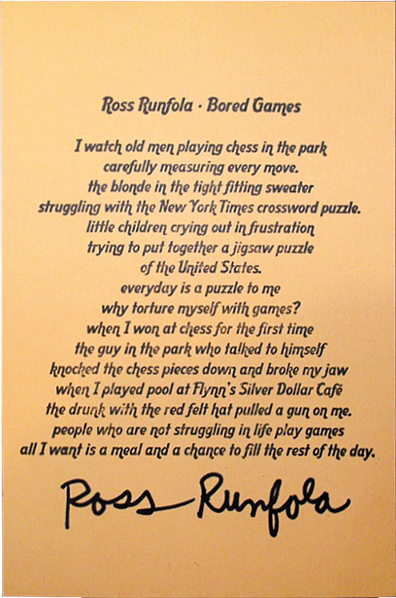 Ross Runfola · Bored Games
I watch old men playing chess in the park
carefully measuring every move.
the blonde in the tight fitting sweater
struggling with the New York Times crossword puzzle.
little children crying out in frustration
trying to put together a jigsaw puzzle
of the United States.
everyday is a puzzle to me
why torture myself with games?
when I won at chess for the first time
the guy in the park who talked to himself
knocked the chess pieces down and broke my jaw
when I played pool at Flynn's Silver Dollar Café
the drunk with the red felt hat pulled a gun on me.
people who are not struggling in life play games
all I want is a meal and a chance to fill the rest of the day.
Ross Runfola